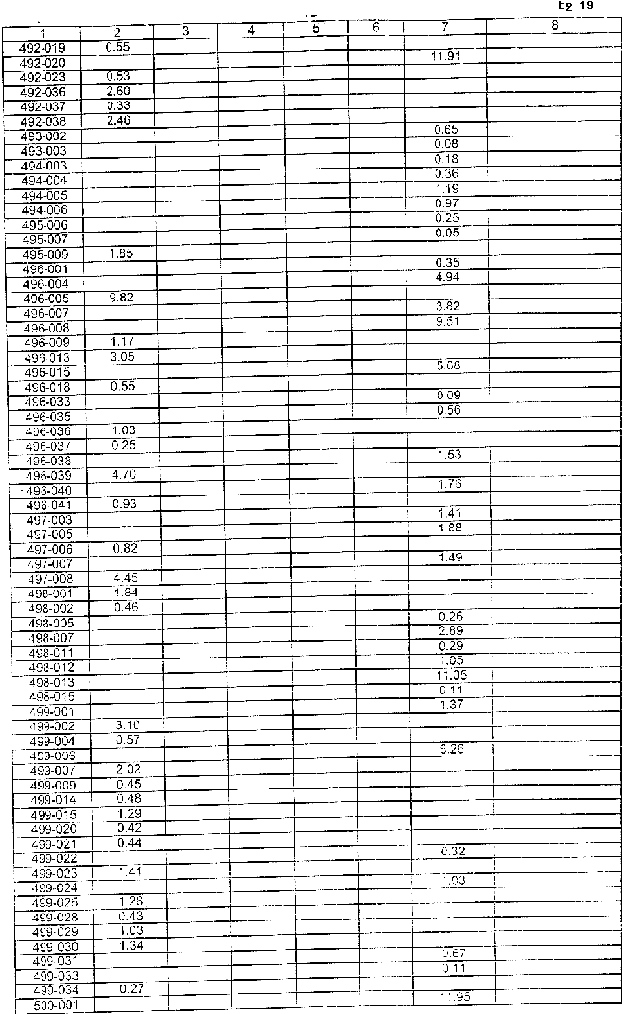 19
1 2 3 4 5 6 7 8
492-019 0.55
492-020 11.91
492-023 0.53
492-036 2.60
492-037 0.33
492-038 2.46
493-002 0.65
493-003 0.08
494-003 0.18
494-004 0.36
494-005 1.19
494-006 0.97
495-006 0.25
495-007 0.05
495-009 1.85
496-001 0.35
496-004 4.94
496-005 9.82
496-007 3.82
496-008 9.51
496-009 1.17
496-013 3.05
496-015
496-018 0.55
496-033 0.09
496-035 0.56
496-036 1.03
496-037 0.25
496-038 1.53
496-039 4.70
496-040 1.76
496-041 0.93
497-003 1.41
497-005 1.88
497-006 0.82
497-007 1.49
497-008 4.45
498-001 1.84
498-002 0.46
498-005 0.26
498-007 2.69
498-011 0.29
498-012 1.05
498-013 11.05
498-015 0.11
499-001 1.37
499-002 3.10
499-004 0.57
499-006
499-007 2.02
499-009 0.45
499-014 0.48
499-015 1.29
499-020 0.42
499-021 0.44
499-022 0.32
499-023 1.41
499-024 1.03
499-025 1.28
499-028 0.43
499-029 1.03
499-030 1.34
499-031 0.67
499-033 0.11
499-034 0.27
500-001 11.95